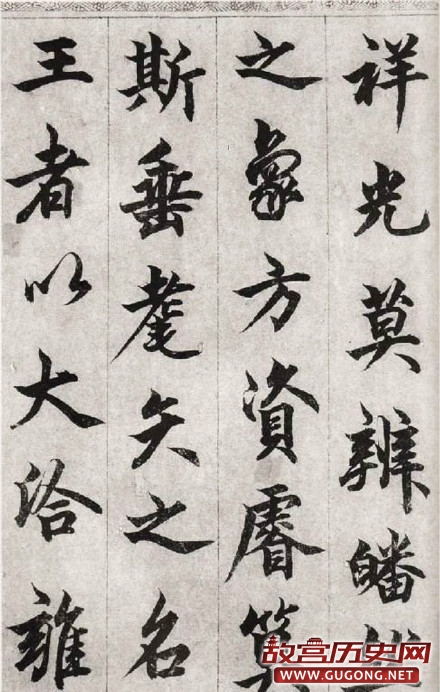 祥光莫辨皤
之象方資睿算
斯垂耄矣之名
王者以大洽雍
故宫历史网
WWW.GUGONG.NET